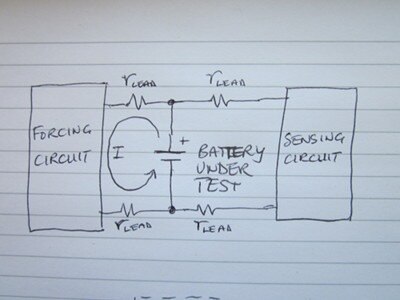 rLEAD
rLEAD
FORCING
CIRCUIT
I
+
BATTERY
UNDER
TEST
SENSING
CIRCUIT
rLEAD
rLEAD